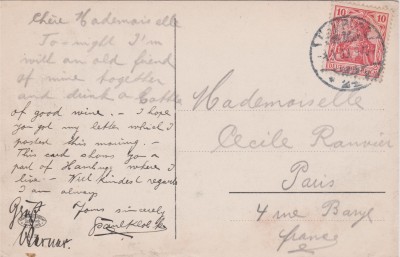 Chère Hademoiselle
To-night I'm
with an old friend
of mine together
and drink a bottle
of good wine. - I hope
you got my letter which I
posted this morning. -
This card shows you a
part of Hamburg where I
live. - With kindest regards
I am always
Yours sincerely
Gruß
Werner.
10
10
Mademoiselle
Cecile Ranvier
Paris
4 rue Baryl
france